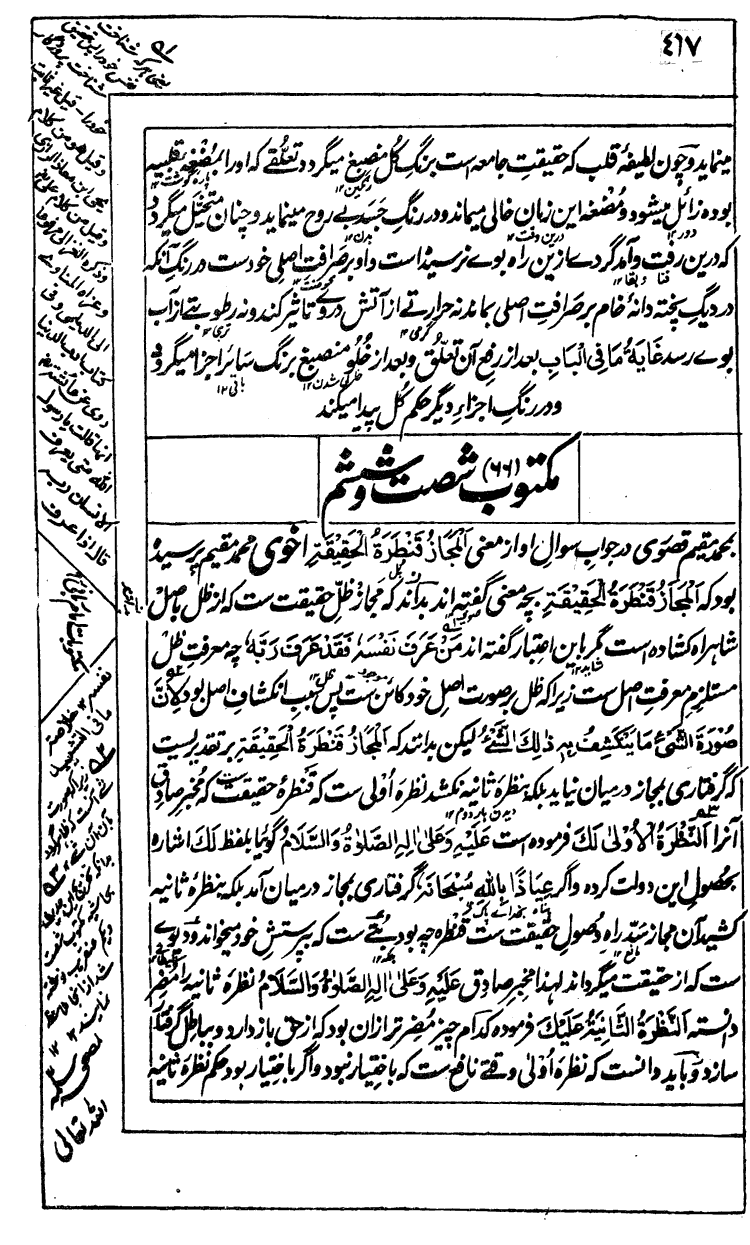 ٤١٧
مینماید و چون لطیفهٔ قلب که حقیقتِ جامعه است برنگِ کُل منصبغ میگردد تعلّقے که او را بمُضغۀ قلبیه
بوده زائل میشود و مُضغه این زمان خالی میماند و در رنگِ جسدِ بے روح مینماید و چنان متخیّل میگردد
که درین رفت و آمد گردے ازین راه بوے نرسیده است و او بر صرافتِ اصلی خودست در رنگِ آنکه
در دیگِ پخته دانۂ خام بر صرافتِ اصلی بماند نه حرارتے از آتش در وے تاثیر کند و نه رطوبتے از آب
بوے رسد غَایَةُ مَا فِی الْبَابِ بعد از رفعِ آن تعلّق و بعد از خُلُو منصبغ برنگ سائر اجزا میگردد
و در رنگِ اجزاءِ دیگر حکمِ کُل پیدا میکند
مکتوب (٦٦) شصت و ششم
بمحمد مقیم قصوری در جوابِ سوالِ او از معنی اَلْمَجَازُ قَنْطَرَةُ الْحَقِیْقَةِ اخوی محمد مقیم پرسیده
بود که اَلْمَجَازُ قَنْطَرَةُ الْحَقِیْقَةِ بچه معنی گفته اند بدانند که مجاز ظلِّ حقیقت ست که از ظل باصل
شاهراه کشاده است مگر باین اعتبار گفته اند مَنْ عَرَفَ نَفْسَهٗ فَقَدْ عَرَفَ رَبَّهٗ چه معرفتِ ظل
مستلزمِ معرفتِ اصل ست زیرا که ظل بر صورتِ اصلِ خود کائن ست پس سببِ انکشافِ اصل بود لِاَنَّ
صُوْرَةَ الشَّیْءِ مَا یَنْکَشِفُ بِهٖ ذٰلِكَ الشَّیْءُ لیکن بدانند که اَلْمَجَازُ قَنْطَرَةُ الْحَقِیْقَةِ بر تقدیریست
که گرفتاری بمجاز درمیان نیاید بلکه بنظرهٔ ثانیه نکشد نظرهٔ اُولٰی ست که قنطرهٔ حقیقت ست که مُخبرِ صادق
آنرا اَلنَّظْرَةُ الْاُوْلٰی لَكَ فرموده است عَلَیْهِ وَعَلٰی اٰلِهِ الصَّلَاةُ وَالسَّلَامُ گویا بلفظ لَكَ اشاره
بحصولِ این دولت کرده و اگر عِیَاذًا بِاللّٰهِ سُبْحَانَهٗ گرفتاری بمجاز درمیان آمد بلکه بنظرهٔ ثانیه
کشید آن مجاز سدِّ راهِ وصولِ حقیقت ست قنطره چه بود بُتے ست که بپرستشِ خود میخواند و دیوے
ست که از حقیقت میگرداند لهذا مخبرِ صادق عَلَیْهِ وَعَلٰی اٰلِهِ الصَّلَاةُ وَالسَّلَامُ نظرهٔ ثانیه را مُضر
دانسته اَلنَّظْرَةُ الثَّانِیَةُ عَلَیْكَ فرموده کدام چیز مُضر تر ازان بود که از حق باز دارد و بباطل گرفتار
سازد و باید دانست که نظرهٔ اُولٰی وقتے نافع ست که باختیار نبود و اگر باختیار بود حکمِ نظرهٔ ثانیه
یعنی هر که شناخت
وقیل هو من کلام
یحیی ابن معاذ الرازی
کتاب ادب الدنیا
متی یعرف
الانسان ربه
قال اذا عرف
نفسه
مکتوبات امام ربانی
الله تعالی